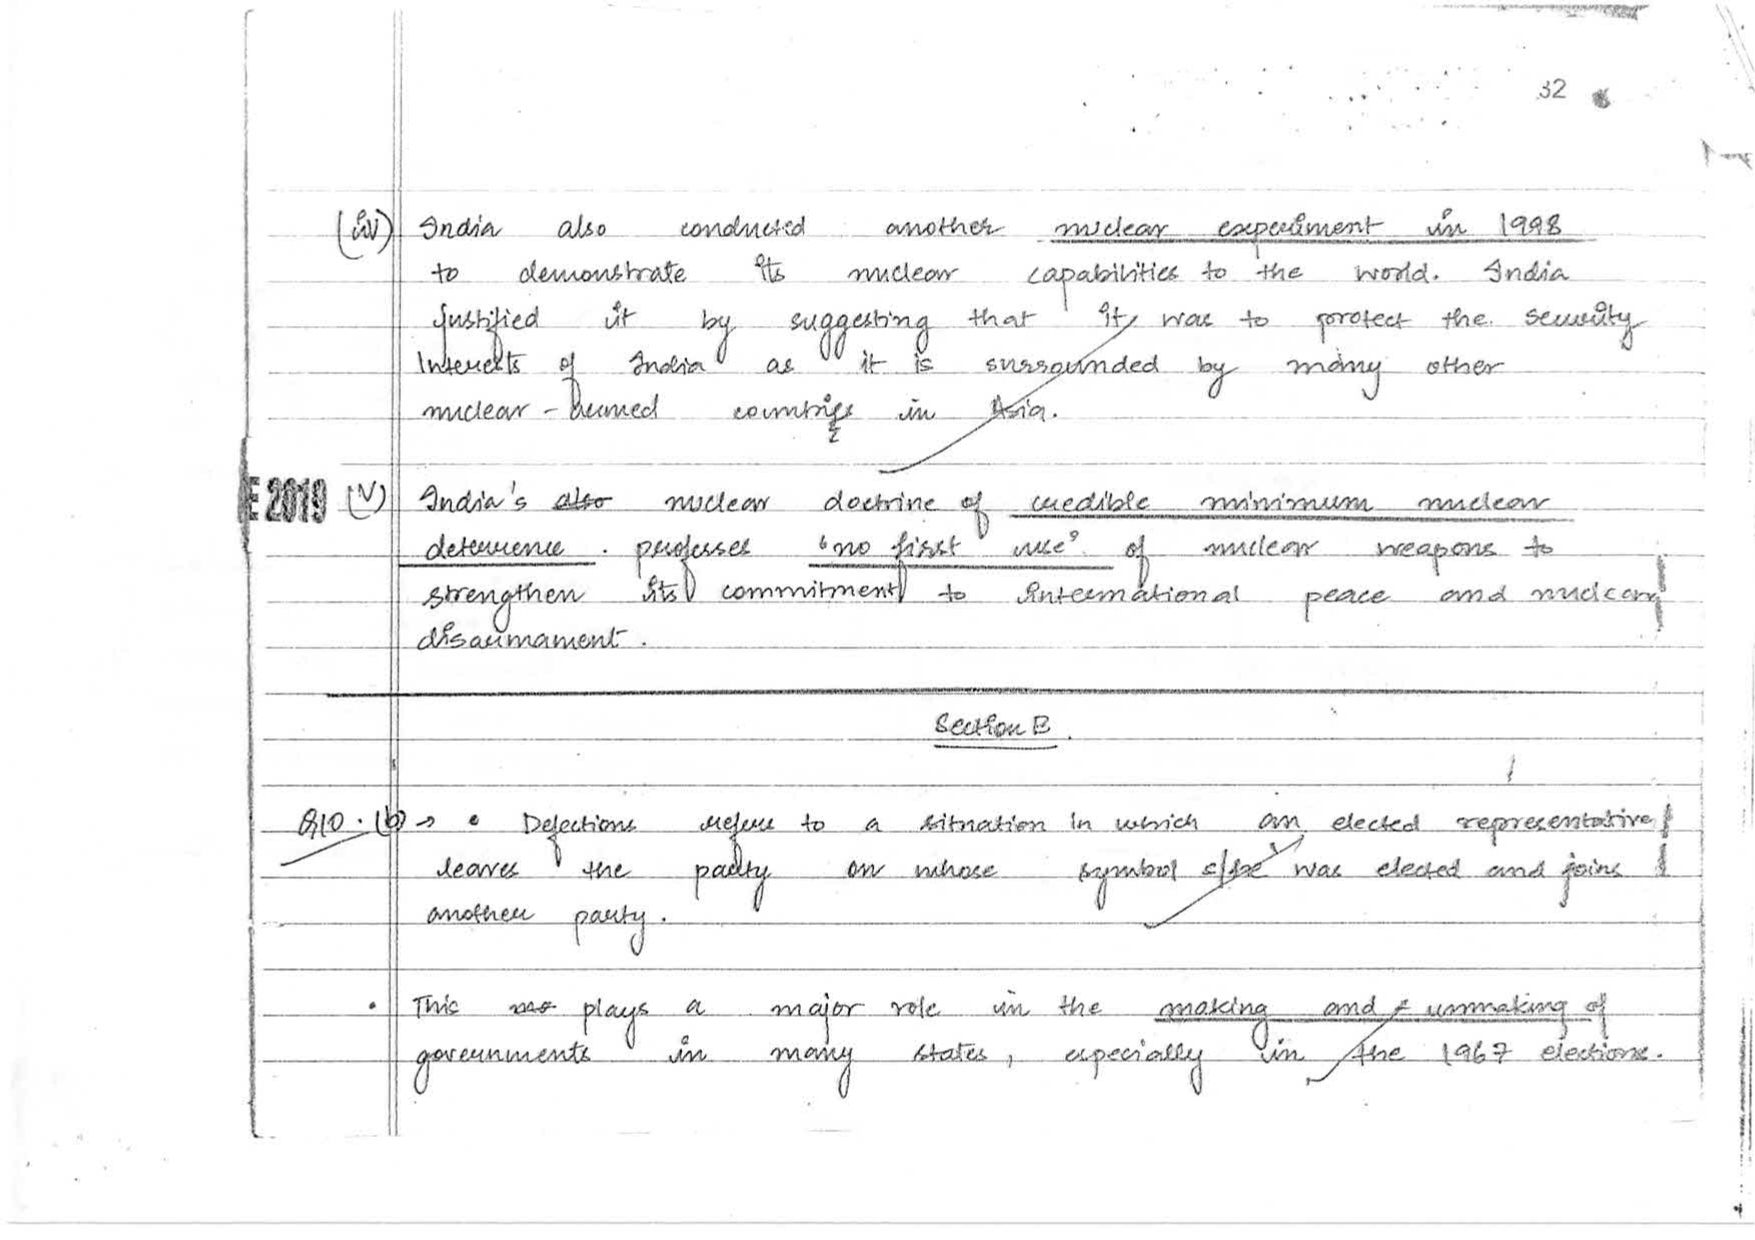 32
(iv) India also conducted another nuclear experiment in 1998
to demonstrate its nuclear capabilities to the world. India
justified it by suggesting that it, was to protect the security
Interests of India as it is surrounded by many other
nuclear - armed countries in Asia.
E 2019 (V) India's also nuclear doctrine of credible minimum nuclear
deterrence . professes "no first use" of nuclear weapons to
strengthen its commitment to international peace and nuclear
disarmament.
Section B.
Q10. (b) → • Defections refers to a situation in which an elected representative
leaves the party on whose symbol s/he was elected and joins
another party.
• This plays a major role in the making and unmaking of
governments in many states, especially in the 1967 elections.